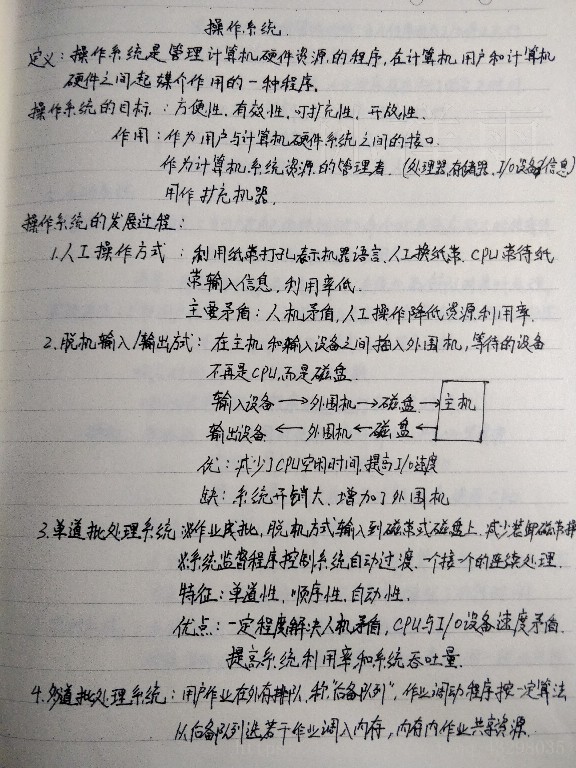 操作系统.
定义：操作系统是管理计算机硬件资源的程序，在计算机用户和计算机
硬件之间起媒介作用的一种程序.
操作系统的目标：方便性、有效性、可扩充性、开放性.
作用：作为用户与计算机硬件系统之间的接口.
作为计算机系统资源的管理者.（处理器、存储器、I/O设备、信息）
用作扩充机器.
操作系统的发展过程：
1.人工操作方式：利用纸带打孔表示机器语言.人工换纸带.CPU等待纸
带输入信息，利用率低.
主要矛盾：人机矛盾，人工操作降低资源利用率.
2.脱机输入/输出方式：在主机和输入设备之间插入外围机，等待的设备
不再是CPU，而是磁盘.
输入设备→外围机→磁盘→主机
输出设备←外围机←磁盘←
优：减少了CPU空闲时间，提高I/O速度
缺：系统开销大，增加了外围机
3.单道批处理系统 作业成批，脱机方式输入到磁带或磁盘上.减少装卸磁带
系统监督程序控制系统自动过渡.一个接一个的连续处理.
特征：单道性、顺序性、自动性.
优点：一定程度解决人机矛盾，CPU与I/O设备速度矛盾.
提高系统利用率和系统吞吐量.
4.多道批处理系统：用户作业在外存排队，称"后备队列"，作业调动程序按一定算法
从后备队列选若干作业调入内存，内存内作业共享资源.
3298035